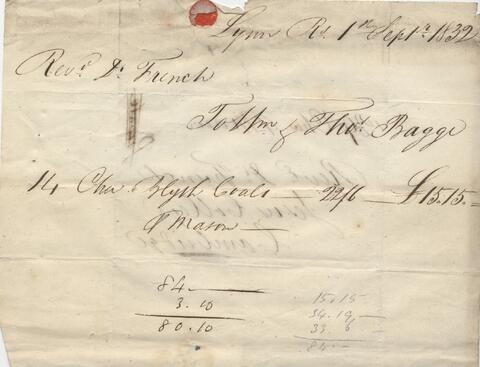 Lynn Rs. 1st Septr. 1832
Revd. Dr. French
To Wm & Thos. Bagge
14 Chr Blyth Coals — 22/6 — £15.15.-
Mason —
84.—
3.10
80.10
15.15-
34.19-
33.6-
84.-